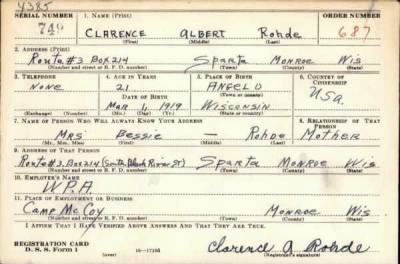 4385
SERIAL NUMBER 1. NAME (Print) ORDER NUMBER
749 CLARENCE ALBERT Rohde 687
(First) (Middle) (Last)
2. ADDRESS (Print)
Route #3 Box 214 Sparta Monroe Wis
(Number and street or R. F. D. number) (Town) (County) (State)
3. TELEPHONE 4. AGE IN YEARS 5. PLACE OF BIRTH 6. COUNTRY OF CITIZENSHIP
None 21 ANGELO USA.
DATE OF BIRTH (Town or county)
Mar 1, 1919 Wisconsin
(Exchange) (Number) (Mo.) (Day) (Yr.) (State or country)
7. NAME OF PERSON WHO WILL ALWAYS KNOW YOUR ADDRESS 8. RELATIONSHIP OF THAT PERSON
Mrs Bessie — Rohde Mother
(Mr., Mrs., Miss) (First) (Middle) (Last)
9. ADDRESS OF THAT PERSON
Route #3, Box 214 (South Black River St) Sparta Monroe Wis
(Number and street or R. F. D. number) (Town) (County) (State)
10. EMPLOYER'S NAME
W.P.A.
11. PLACE OF EMPLOYMENT OR BUSINESS
Camp McCoy Monroe Wis
(Number and street or R. F. D. number) (Town) (County) (State)
I AFFIRM THAT I HAVE VERIFIED ABOVE ANSWERS AND THAT THEY ARE TRUE.
REGISTRATION CARD
D. S. S. Form 1 (over) 16—17105 Clarence A Rohde
(Registrant's signature)